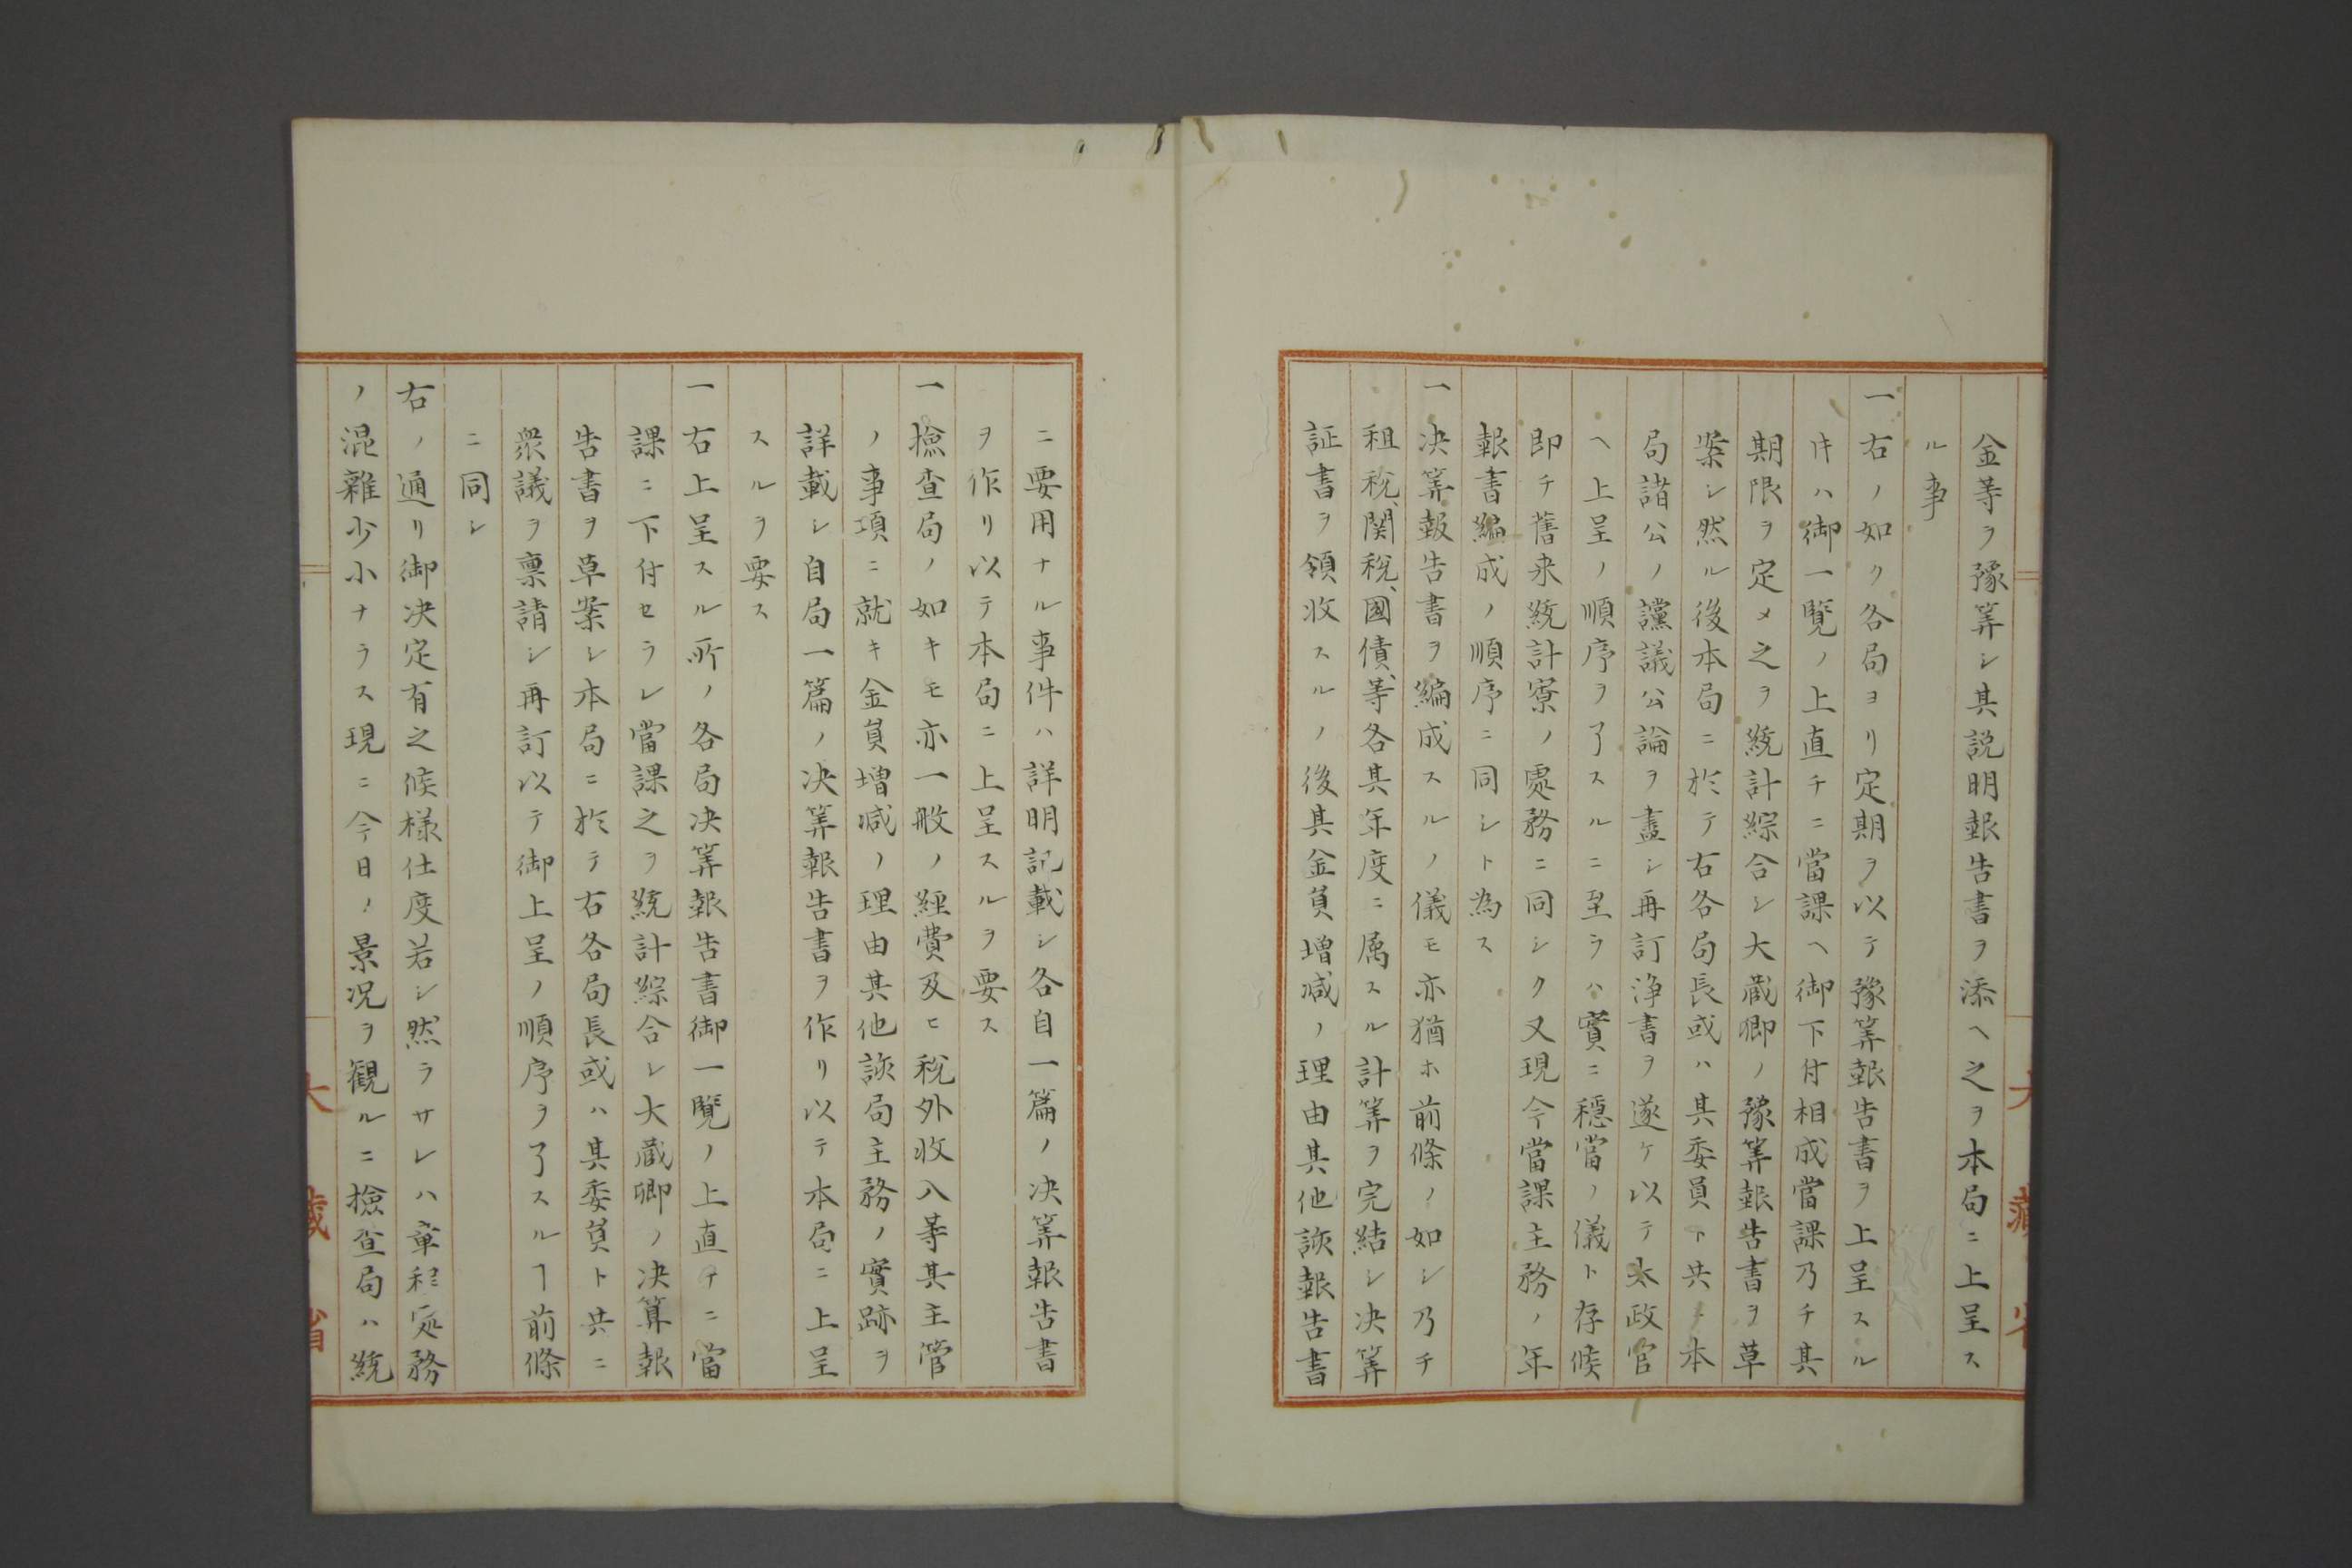 金等ヲ豫算シ其説明報告書ヲ添ヘ之ヲ本局ニ上呈ス
ル事
一右ノ如ク各局ヨリ定期ヲ以テ豫算報告書ヲ上呈スル
𪜈ハ御一覽ノ上直チニ當課ヘ御下付相成當課乃チ其
期限ヲ定メ之ヲ統計綜合シ大蔵卿ノ豫算報告書ヲ草
案シ然ル後本局ニ於テ右各局長或ハ其委員ト共ニ本
局諸公ノ讜議公論ヲ盡シ再訂浄書ヲ遂ケ以テ太政官
ヘ上呈ノ順序ヲ了スルニ至ラハ實ニ穏當ノ儀ト存候
即チ舊来統計寮ノ處務ニ同シク又現今當課主務ノ年
報書編成ノ順序ニ同シト為ス
一决算報告書ヲ編成スルノ儀モ亦猶ホ前條ノ如シ乃チ
租税、関税、國債、等各其年度ニ属スル計算ヲ完結シ决算
証書ヲ領收スルノ後其金員増减ノ理由其他該報告書
ニ要用ナル事件ハ詳明記載シ各自一篇ノ决算報告書
ヲ作リ以テ本局ニ上呈スルヲ要ス
一撿査局ノ如キモ亦一般ノ經費及ヒ税外收入等其主管
ノ事項ニ就キ金員増减ノ理由其他該局主務ノ實跡ヲ
詳載シ自局一篇ノ决算報告書ヲ作リ以テ本局ニ上呈
スルヲ要ス
一右上呈スル所ノ各局决算報告書御一覽ノ上直チニ當
課ニ下付セラレ當課之ヲ統計綜合シ大蔵卿ノ决算報
告書ヲ草案シ本局ニ於テ右各局長或ハ其委員ト共ニ
衆議ヲ禀請シ再訂以テ御上呈ノ順序ヲ了スルヿ前條
ニ同シ
右ノ通リ御决定有之候様仕度若シ然ラサレハ章程處務
ノ混雜少小ナラス現ニ今日ノ景况ヲ観ルニ撿査局ハ統
大藏省